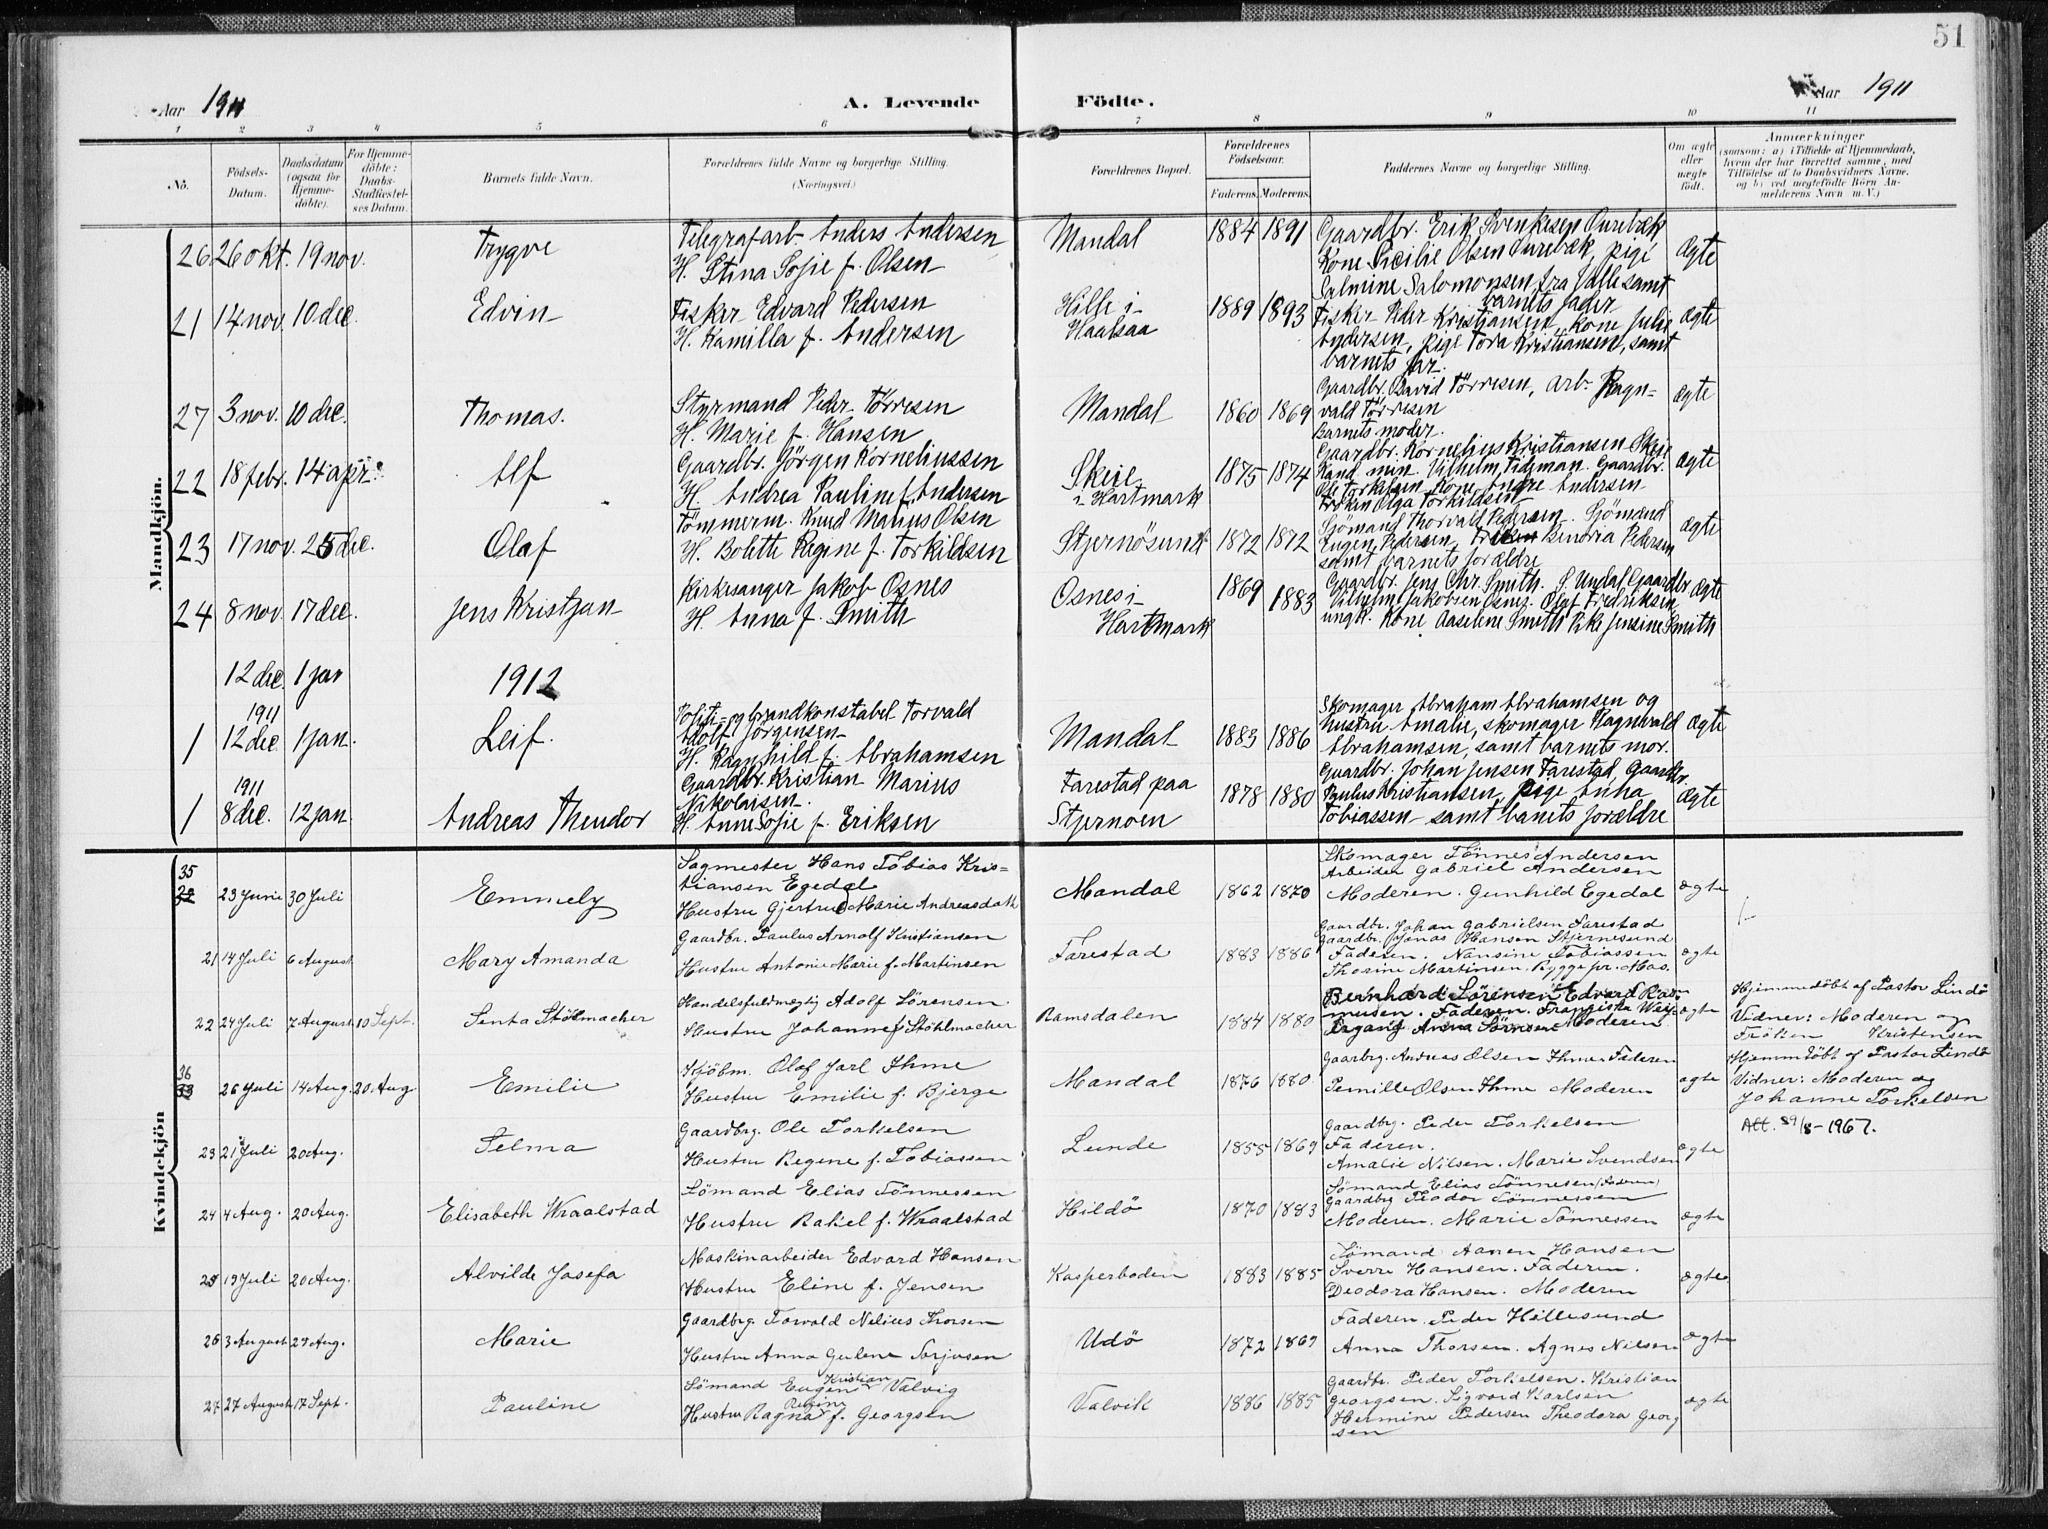 51
Aar 1911
A. Levende
Födte.
Aar 1911
1 2 3 4 5 6 7 8 9 10 11
No.
Födsels-
Datum.
Daabsdatum
(ogsaa for
Hjemme-
döbte).
For Hjemme-
döbte:
Daabs-
Stadfæstel-
ses Datum.
Barnets fulde Navn.
Forældrenes fulde Navne og borgerlige Stilling.
(Næringsvei.)
Forældrenes Bopæl.
Forældrenes
Födselsaar.
Faderens. Moderens.
Faddernes Navne og borgerlige Stilling.
Om ægte
eller
uægte
födt.
Anmærkninger
(saasom: a) i Tilfælde af Hjemmedaab,
hvem der har forrettet samme, med
Tilföielse af to Daabsvidners Navne.
og b) ved uægtefödte Börn An-
melderens Navn m. V.)
Mandkjön.
26 26 okt. 19 nov. Trygve
Telegrafarb. Anders Andersen
H. Stina Sofie f. Olsen
Mandal 1884 1891
Gaardbr. Erik Svenksen
Kone Sicilie Olsen pige
Salmine Salomonsen fra Valle samt
barnets fader
ægte
21 14 nov. 10 dec. Edvin
Fisker Edvard Pedersen
H. Kamilla f. Andersen
Hille i
1889 1893
Fisker Peder Kristiansen, kone Julie
Andersen, pige Tora Kristiansen, samt
barnets far.
ægte
27 3 nov. 10 dec. Thomas.
Styrmand Peder Törresen
H. Marie f. Hansen
Mandal 1860 1869
Gaardbr. David Törresen, arb. Ragn-
vald Törresen
Barnets moder.
ægte
22 18 febr. 14 apr. Alf
Gaardbr. Jörgen Korneliussen
H. Andrea Pauline f. Andersen
Skeie
i Hartmark
1875 1874
Gaardbr. Kornelius Kristiansen Skeie
Kand. min. Vilhelm Tideman. Gaardbr.
Ole Torkildsen Kone Andersen
Fröken Olga Torkildsen
ægte
23 17 nov. 25 dec. Olaf
Tömmerm. Knud Marius Olsen
H. Bolette Regine f. Torkildsen
Stjernösund 1872 1872
Sjömand Thorvald Pedersen. Sjömand
Eugen Pedersen, Pedersen
samt barnets forældre
ægte
24 8 nov. 17 dec. Jens Kristjan
Kirkesanger Jakob Osnes
H. Anna f. Smith
Osnes i
Hartmark
1869 1883
Gaardbr. Jens Chr. Smith. S. Undal Gaardbr
Vilhelm Jakobsen Osnes. Olaf Fredriksen
ungk. Kone Aaselene Smith Pike Jensine Smith
ægte
12 dec. 1 jan
1912
1911
1 12 dec. 1 jan. Leif.
Politi- og brandkonstabel Torvald
Adolf Jörgensen
H. Ragnhild f. Abrahamsen
Mandal 1883 1886
Skomager Abraham Abrahamsen og
hustru Amalie, skomager Ragnvald
Abrahamsen, samt barnets mor.
ægte
1911
1 8 dec. 12 jan. Andreas Theodor
Gaardbr. Kristian Marius
Nikolaisen.
H. Anne Sofie f. Eriksen
Farestad paa
Stjernoen
1878 1880
Gaardbr. Johan Jensen Farestad, Gaardbr
Paulus Kristiansen, pige Anna
Tobiassen samt banets forældre
ægte
Kvindekjön
35
23 Juni 30 Juli Emmely
Sagmester Hans Tobias Kris-
tiansen Egedal
Hustru Gjertrud Marie Andreasdatt
Mandal 1862 1870
Skomager Tönnes Andersen
Arbeider Gabriel Andersen
Moderen. Gunhild Egedal
ægte
21 14 Juli 6 August Mary Amanda
Gaardbr. Paulus Arnolf Kristiansen
Hustru Antonie Marie f. Martinsen
Farestad 1883 1886
Gaardbr. Johan Gabrielsen Farestad
Gaardbr. Jonas Hansen Stjernesund
Faderen. Nansine Tobiassen
Thorine Martinsen. Rygge pr. Mos.
ægte
22 24 Juli 7 August 10 Sept. Senta Stöhlmacher
Handelsfuldmegtig Adolf Sörensen
Hustru Johanne f. Stöhlmacher
Ramsdalen 1884 1880
Bernhard Sörensen, Edvard Ras-
musen. Faderen. Franziska
Anna Sörensen Moderen
ægte
Hjemmedöbt af Pastor Lindö
Vidner: Moderen og
Fröken Kristensen
36
33 26 Juli 14 Aug. 20 Aug Emilie
Kjöbm. Olaf Jarl Ihme
Hustru Emilie f. Bjerge
Mandal 1876 1880
Gaarbrg. Andreas Olsen Ihme. Faderen
Pernille Olsen Ihme Moderen
ægte
Hjemmedöbt af Pastor Lindö
Vidner: Moderen og
Johanne Torkelsen
Att. 29/8-1967.
23 21 Juli 20 Aug. Selma
Gaardbrg. Ole Torkelsen
Hustru Regine f. Tobiassen
Lunde 1855 1869
Gaardbrg. Peder Torkelsen
Faderen.
Amalie Nilsen. Marie Svendsen
ægte
24 4 Aug. 20 Aug. Elisabeth Wraalstad
Sömand Elias Tönnessen
Hustru Rakel f. Wraalstad
Hildö 1870 1883
Sömand Elias Tönnesen (Faderen)
Gaardbrg Theodor Tönnessen
Moderen. Marie Tönnessen
ægte
25 19 Juli 20 Aug. Alvilde Josefa
Maskinarbeider Edvard Hansen
Hustru Eline f. Jensen
Kasperboden 1883 1885
Sömand Aanen Hansen
Sverre Hansen. Faderen.
Deodora Hansen. Moderen
ægte
26 3 August 27 Aug. Marie
Gaardbrg. Torvald Nelius Thorsen
Hustru Anna Gulene Torjusen
Udö 1872 1869
Faderen. Peder Hillesund
Anna Thorsen. Agnes Nilsen
ægte
27 27 August 17 Sept. Pauline
Sömand Eugen Kristian Valvig
Hustru Ragna Regine f. Georgsen
Valvik 1886 1885
Gaardbr. Peder Torkelsen. Kristian
Georgsen. Sigvard Karlsen
Hermine Pedersen Theodora Georg
sen
ægte